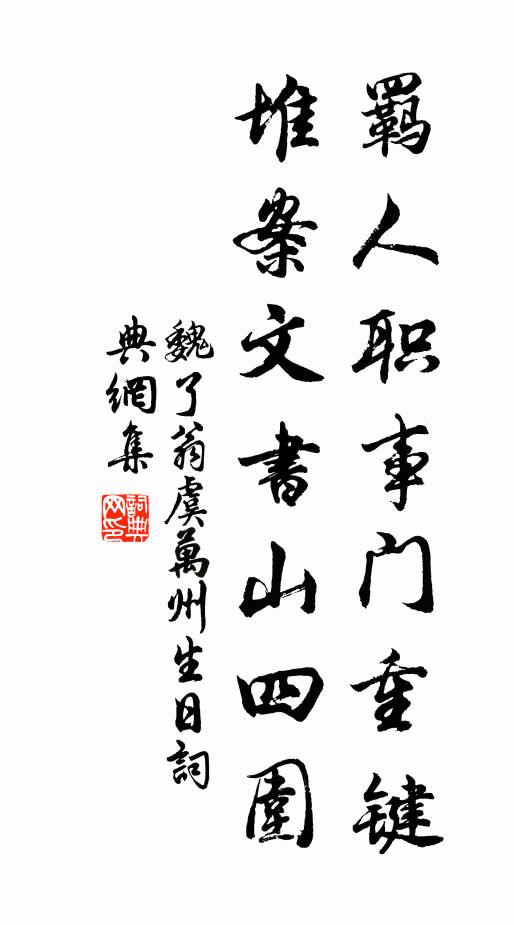 羁人职事门重键
堆案文書山四圍
魏了翁虞萬州生日詞
典網集
詞典網印